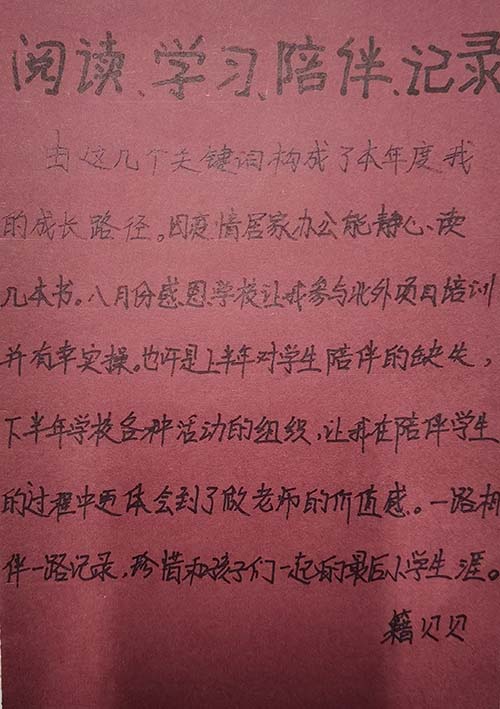 阅读、学习、陪伴、记录
由这几个关键词构成了本年度我
的成长路径。因疫情居家办公能静心、读
几本书。八月份感恩学校让我参与北外项目培训
并有幸实操。也许是上半年对学生陪伴的缺失，
下半年学校各种活动的组织，让我在陪伴学生
的过程中更体会到了做老师的价值感。一路相
伴一路记录，珍惜和孩子们一起的最后小学生涯。
籍贝贝